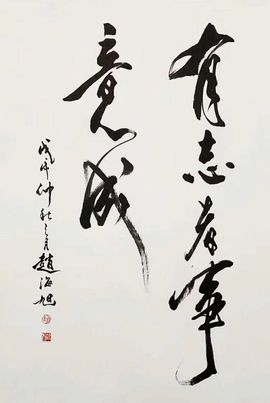 有志者事
竟成
仲秋之月趙海旭